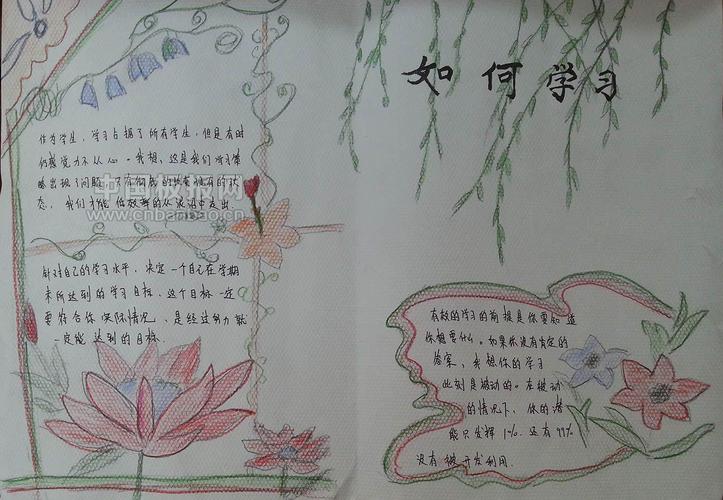 如何学习
作为学生，学习占据了所有学生，但是有时
们感觉力不从心。我想，这是我们学习策
略出现了问题
态，我们才能
中国板报网
www.cnbanbao.cn
针对自己的学习水平，决定一个自己在学期
末所达到的学习目标，这个目标一定
要符合你实际情况，是经过努力就
一定能达到的目标.
有效的学习的前提是你要知道
你想要什么。如果你没有肯定的
答案，我想你的学习
此刻是被动的。在被动
的情况下，你的潜
能只发挥1%.还有99%
没有被开发利用.